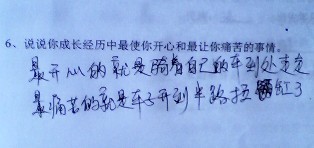 6、说说你成长经历中最使你开心和最让你痛苦的事情。
最开心的就是骑着自己的车到处走走
最痛苦的就是车子开到半路拉缸了